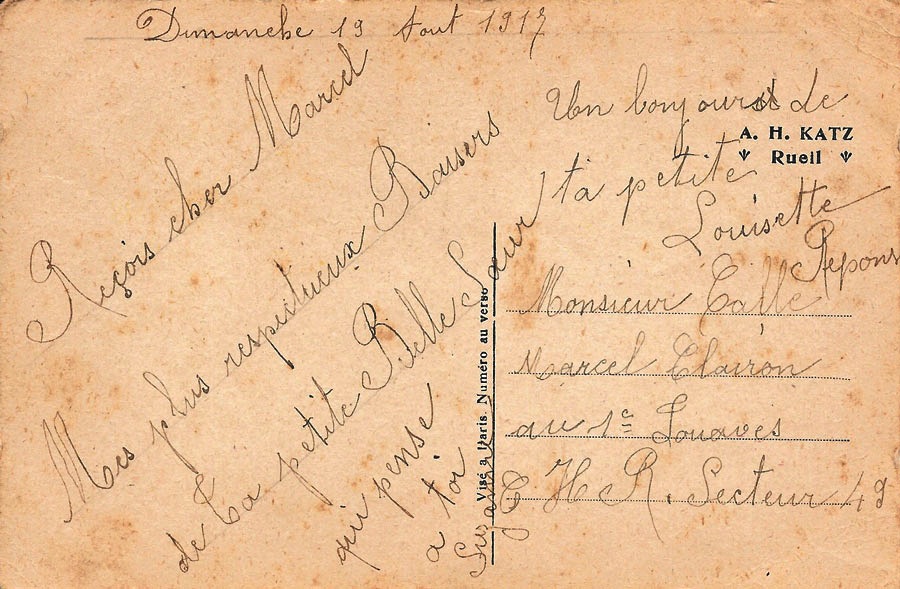 Dimanche 19 Aout 1917
Reçois cher Marcel
Mes plus respectueux Baisers
de ta petite Belle Sœur
qui pense
a toi
Un bonjour de
ta petite
Louisette
Repons
A. H. KATZ
Rueil
Visé a Paris. Numéro au verso
Monsieur
Marcel Clairon
au 1e Zouaves
C H R. Secteur 49